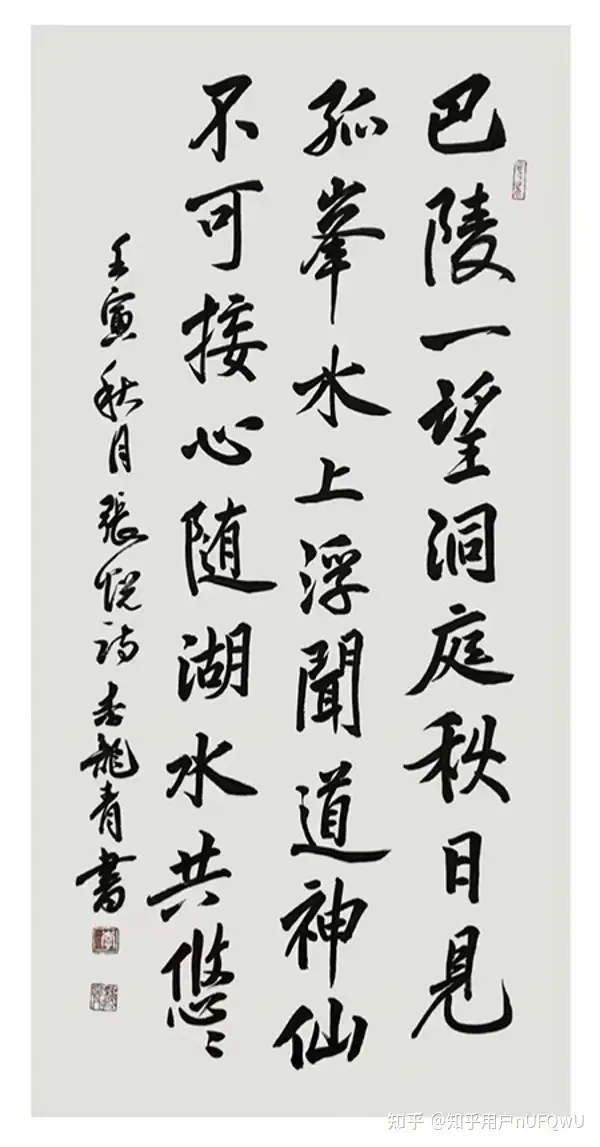 巴陵一望洞庭秋日見
孤峯水上浮聞道神仙
不可接心随湖水共悠〻
壬寅秋月張悦詩李龍青書
知乎 @知乎用户nUFQwU